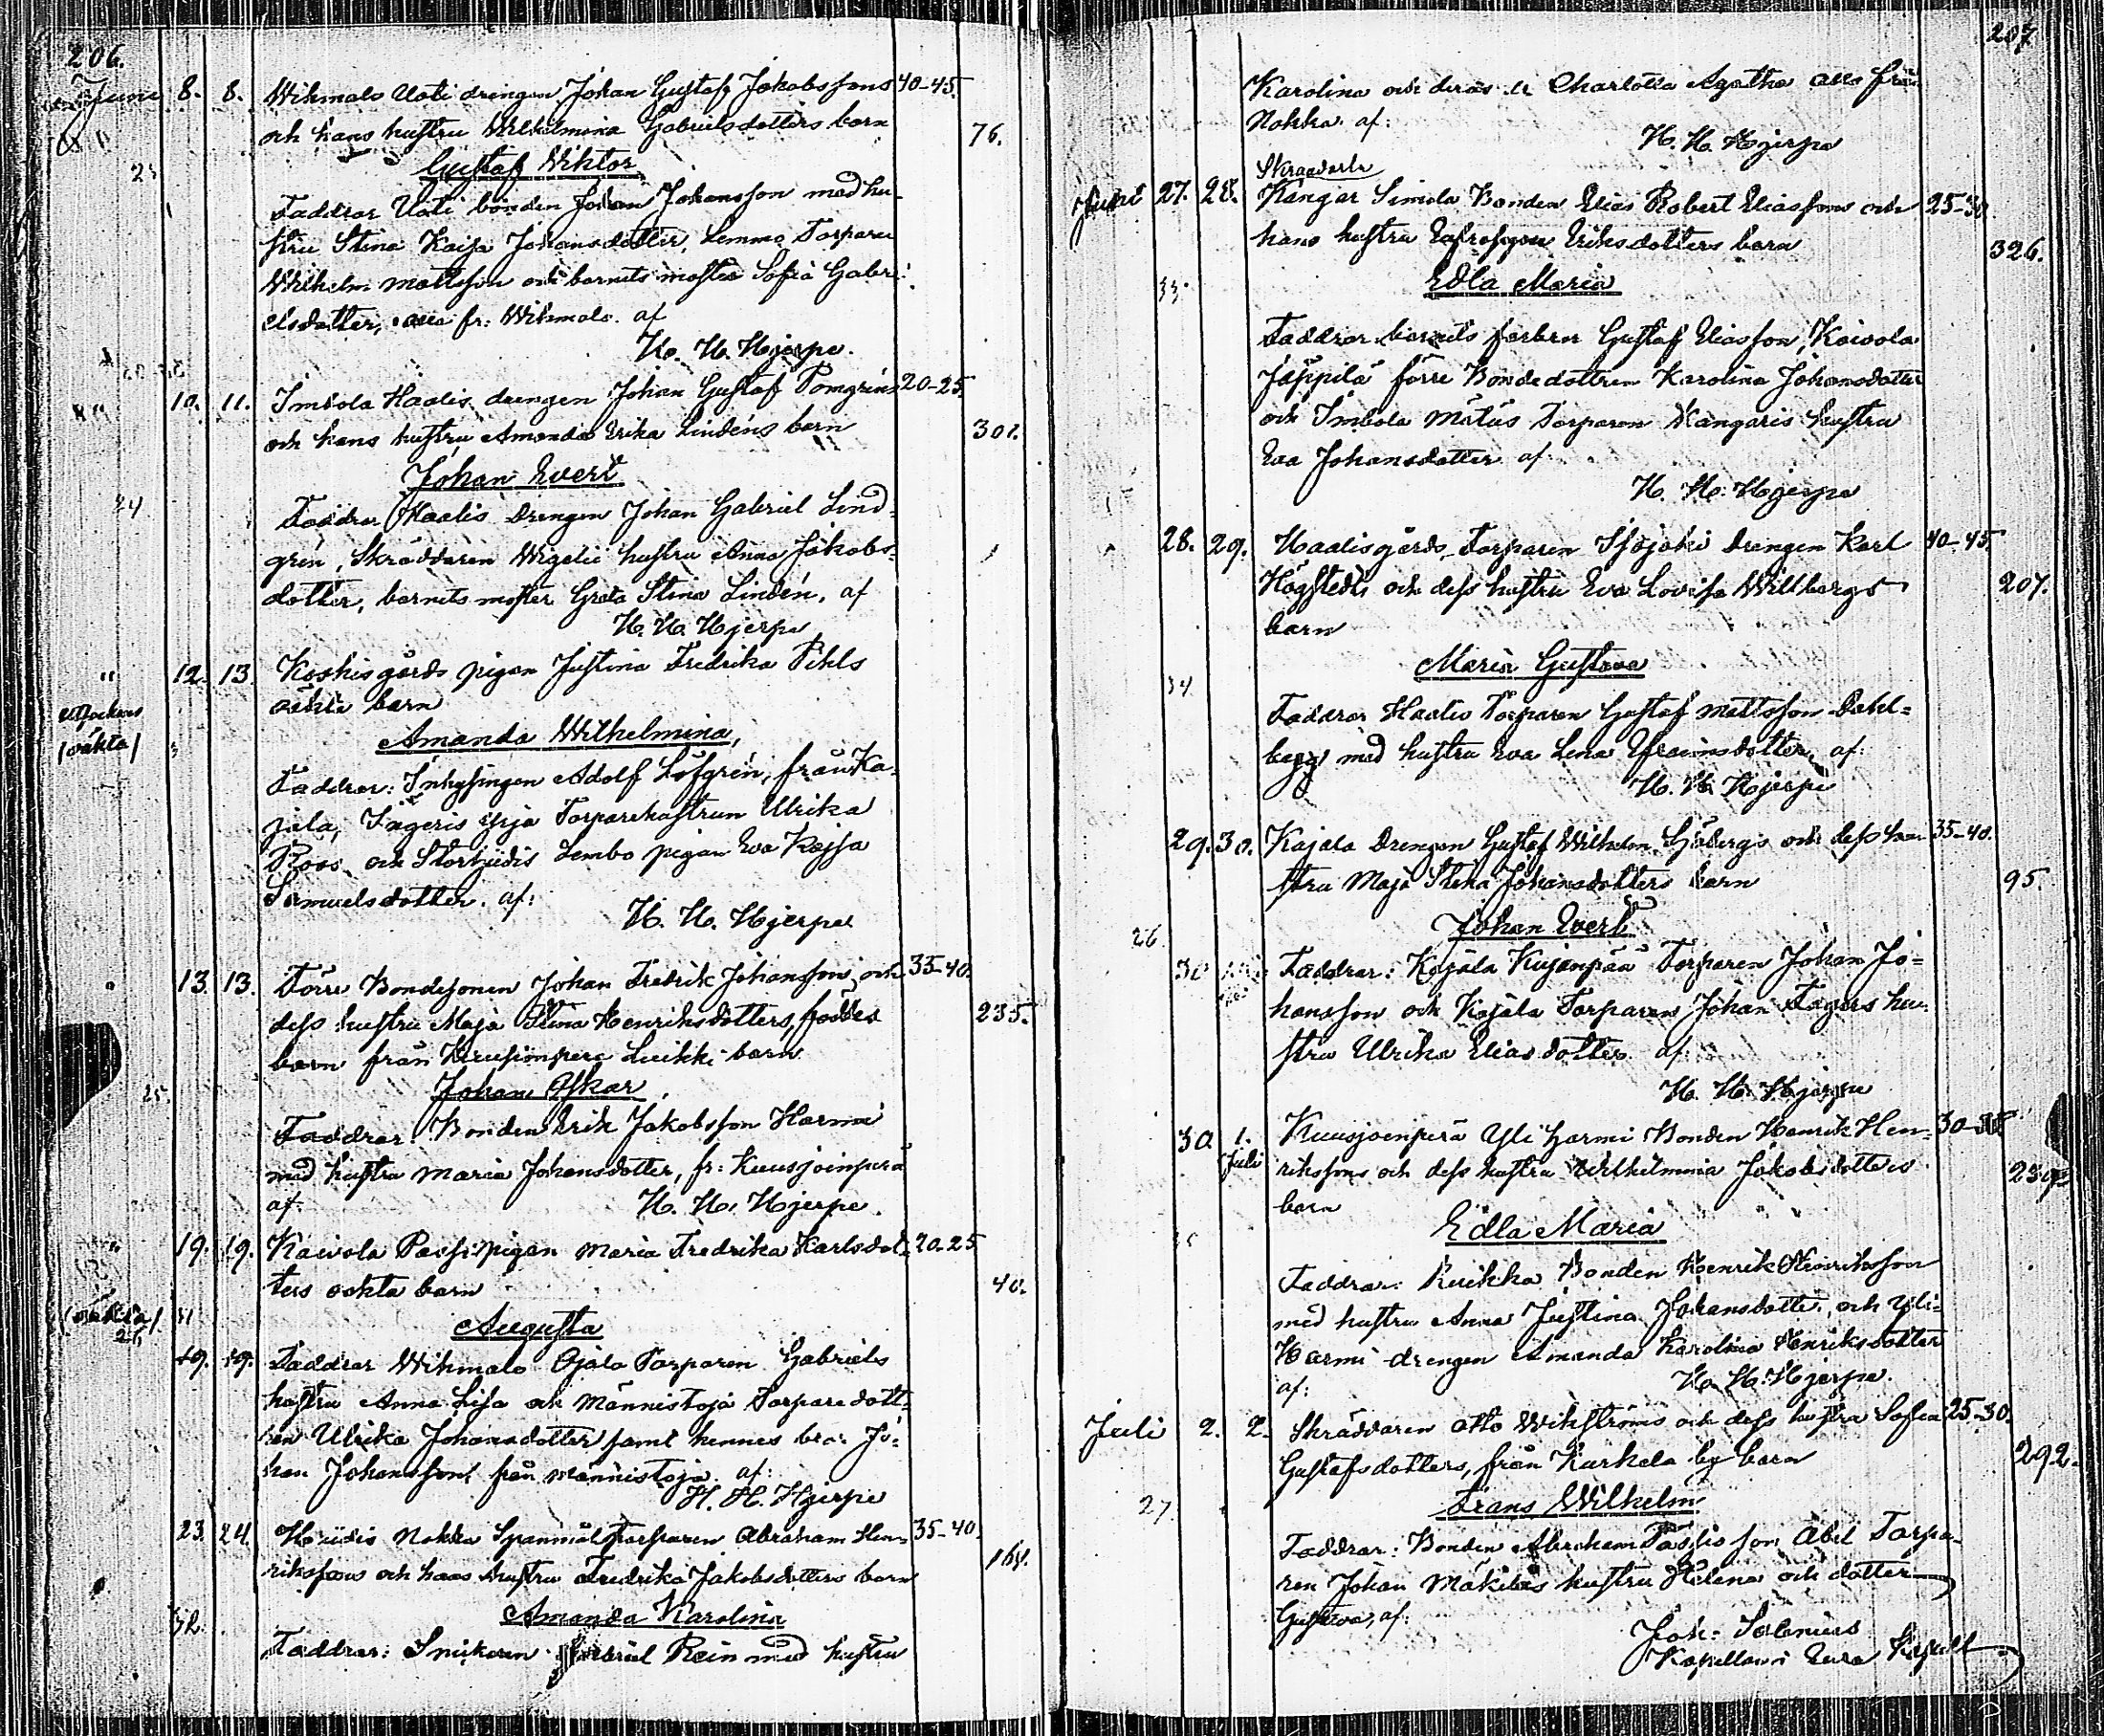 206.
Juni 8. 8. Wihmalo Uoti drengen Johan Gustaf Jakobssons 40-45.
och hans hustru Wilhelmina Gabrielsdotters barn 76.
Gustaf Wiktor
Faddrar Uoti bonden Johan Johansson med hu-
stru Stina Kaisa Johansdotter, Lemmo Torparen
Wilhelm Mattsson och barnets moster Sofia Gabri-
elsdotter, alla fr: Wihmalo. af
H. H. Hjerpe.
10. 11. Imbola Haalis drengen Johan Gustaf Pomgrens 20-25.
och hans hustru Amanda Erika Lindéns barn 301.
Johan Evert
24
Faddrar Haalis Drengen Johan Gabriel Lind-
grén, Skräddaren Wigelii hustru Anna Jakobs-
dotter, barnets moster Greta Stina Lindén. af
H. H. Hjerpe
" 12. 13. Koskis gårds pigan Justina Fredrika Pihls
oäkta barn
/oäkta/
Amanda Wilhelmina,
Faddrar: Inhysingen Adolf Löfgrén, från Ka-
jala, Sageris Yrjä Torparehustrun Ulrika
Roos och Storhiidis Lembo pigan Eva Kajsa
Samuelsdotter. af:
H. H. Hjerpe
13. 13. Förre Bondesonen Johan Fredrik Johanssons och 35-40.
dess hustru Maja Stina Henriksdotters, födde 235.
barn från Kuusjoenperä Luikki barn
Johan Oskar
25.
Faddrar: Bonden Erik Jakobsson Harmi
med hustru Maria Johansdotter, fr: Kuusjoinperä
af.
H. H. Hjerpe.
" 19. 19. Kaivola Passi pigan Maria Fredrika Karlsdot- 20-25
ters oäkta barn 40.
(oäkta) 31
Augusta
19. 19. Faddrar Wihmalo Ojala Torparen Gabriels
hustru Anna Lisa och Männistoja Torparedott-
ren Ulrika Johansdotter samt hennes bror Jo-
han Johansson från Männistoja. af:
H. H. Hjerpe
23. 24. Hiidis Nokka Spanmåls Torparen Abraham Hen- 35-40.
rikssons och hans hustru Fredrika Jakobsdotters barn 164.
Amanda Karolina
32.
Faddrar: Snikaren Gabriel Rein med hustru
207
Karolina och deras Charlotta Agatha alla från
Nokka. af:
H. H. Hjerpe
Skraaderla
Juni 27. 28. Kangar Simola Bonden Elias Robert Eliassons och 25-30.
hans hustru Eufrosyne Eriksdotters barn 326.
Edla Maria
33.
Faddrar barnets farbror Gustaf Eliasson, Kaivola
Jäppilä förre Bondedottren Karolina Johansdotter
och Imbola Mätäs Torparen Kangaris hustru
Eva Johansdotter af
H. H. Hjerpe
28. 29. Haalisgårds Torparen Isojoki drengen Karl 40-45.
Högstedts och dess hustru Eva Lovisa Willbergs 207.
barn
Maria Gustava
34.
Faddrar Haalis Torparen Gustaf Mattsson Dahl-
berg med hustru Eva Lena Efraimsdotter, af:
H. H. Hjerpe
29. 30. Kajala Drengen Gustaf Wilhelm Sjöbergs och dess hu- 35-40.
stru Maja Stina Johansdotters barn 95.
Johan Evert
26.
30
Faddrar: Kajala Kujanpää Torparen Johan Jo-
hansson och Kajala Torparen Johan Fagers hu-
stru Ulrika Eliasdotter af:
H. H. Hjerpe
30. 1. Kuusjoenperä Yli Harmi Bonden Henrik Hen- 30-35
Juli rikssons och dess hustru Wilhelmina Jakobsdotters
barn
Edla Maria
35
Faddrar: Ruikka Bonden Henrik Henriksson
med hustru Anna Justina Johansdotter, och Yli-
Harmi drengen Amanda Karolina Henriksdotter
af:
H. H. Hjerpe.
Juli 2. 2. Skräddaren Otto Wikströms och dess hustru Sofia 25-30.
Gustafsdotters, från Karhela by barn 292.
Frans Wilhelm
27.
Faddrar: Bonden Abraham Son Abel Torpa-
ren Johan Mäkiläs hustru Helena och dotter
Gustava, af:
Joh: Salenius
Kapellan i Eura Kapell